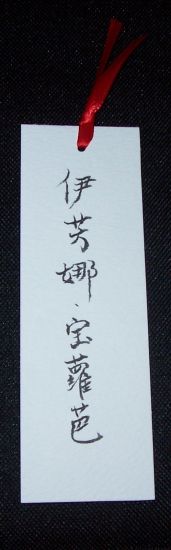 伊芳娜·宝蘿芭